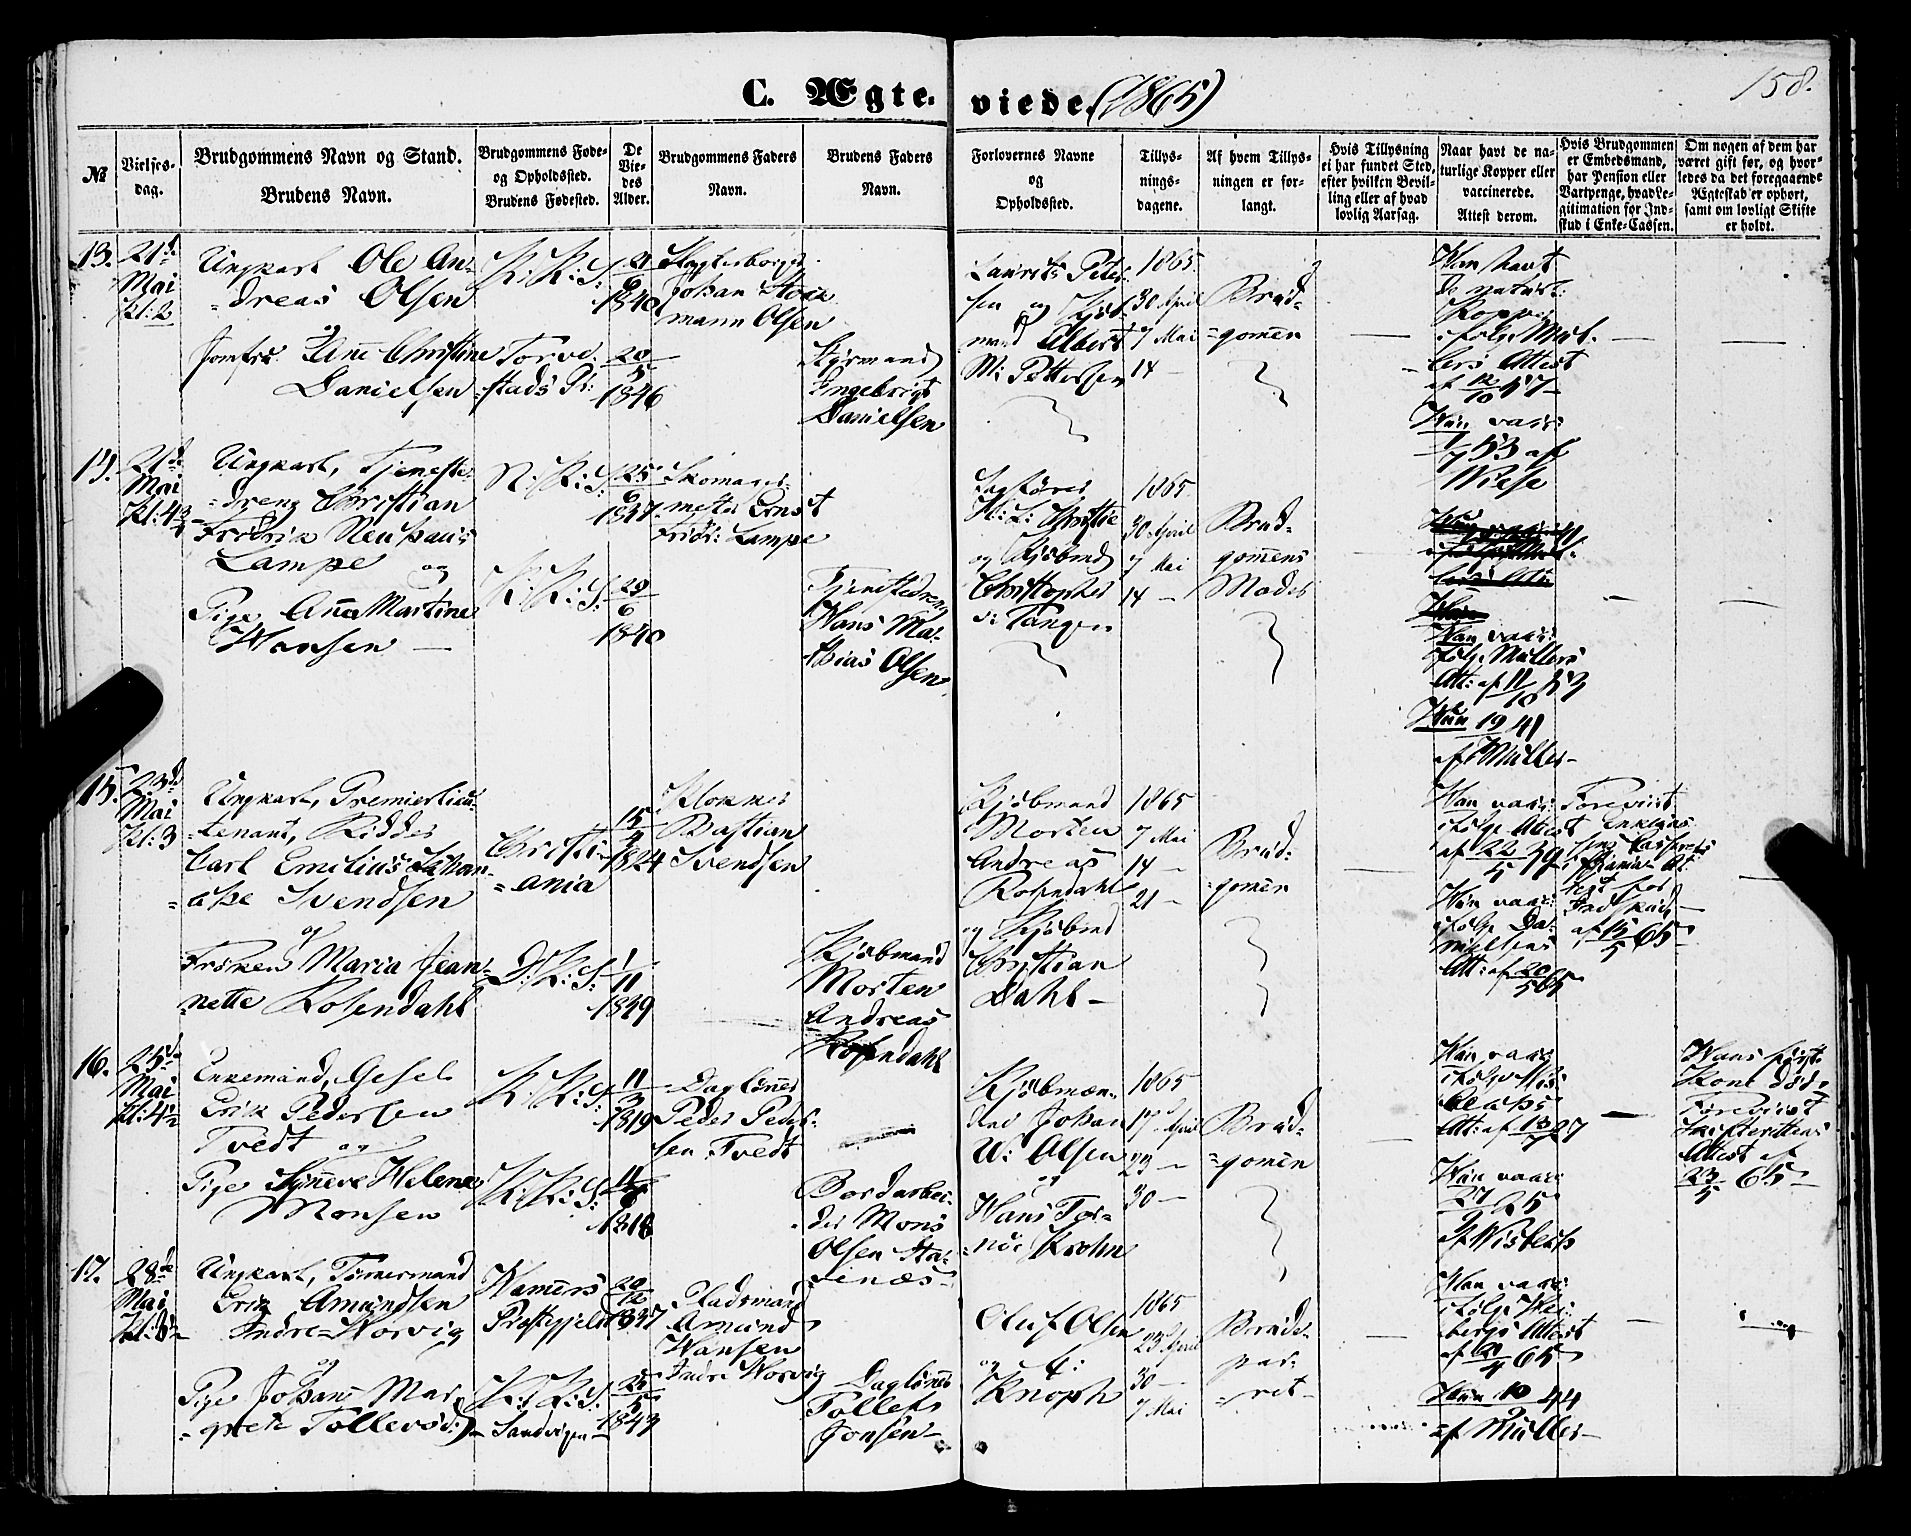 158.
C. Ægte-viede. (1865)
№
Vielses-dag.
Brudgommens Navn og Stand.
Brudens Navn.
Brudgommens Føde- og Opholdssted.
Brudens Fødested.
De Vie-des Alder.
Brudgommens Faders Navn.
Brudens Faders Navn.
Forlovernes Navne og Opholdssted.
Tillys-nings-dagene.
Af hvem Tillys-ningen er for-langt.
Hvis Tillysning ei har fundet Sted, efter hvilken Bevil-ling eller af hvad lovlig Aarsag.
Naar havt de na-turlige Kopper eller vaccinerede. Attest derom.
Hvis Brudgommen er Embedsmand, har Pension eller Vartpenge, hvad Le-gitimation for Ind-skud i Enke-Cassen.
Om nogen af dem har været gift før, og hvor-ledes da det foregaaende Ægteskab er ophørt, samt om lovligt Skifte er holdt.
13.
21de
Mai
Kl: 2
Ungkarl Ole An-
dreas Olsen
og
Jomfru Anne Christine
Danielsen
K: K: S:
Torve-
stads Pr:
1840
20/5
1846
Johan Stock
mann Olsen
Styrmand
Engebrigt
Danielsen
Laurits Peter-
sen og
Albert
M: Pettersen
1865
30 April
7 Mai
14 —
Brud-
gomen
Han havt
de naturl:
Kopper
ifølge Mül-
lers Attest
af 12/10 47
Hun vacc:
1/7 53 af
Wiese
14.
21de
Mai
Kl: 4 3/4
Ungkarl, Tjeneste-
dreng Christian
Fredrik Neuhaus
Lampe og
Pige Anna Martine
Hansen —
N: K: S:
K: K: S:
25/6
1847
29/6
1840
Skomager-
mester Ernst
Fridr: Lampe
Hans Ma-
thias Olsen
Sagfører
H: L: Christie
og Kjøbmd
Christopher
d: Tangen
1865
30 April
7 Mai
14 —
Brud-
gomens
Moder
Han vacc:
ifølge Müllers
Att: af 11/10 53
Hun 19 41
af Müller —
15.
23de
Mai
Kl: 3
Ungkarl, Premierlieu-
tenant, Ridder
Carl Emilius Johan
Svendsen
og
Frøken Maria Jean-
nette Rosendahl
Christi-
ania
D: K: S:
15/4
1824
1/11
1839
Klokker
Bastian
Svendsen
Kjøbmand
Morten
Andreas
Rosendahl
Kjøbmand
Morten
Andreas
Rosendahl
og Kjøbmd
Christian
Dahl —
1865
7 Mai
14 —
21 —
Brud-
gomen
Han vacc:
ifølge Attest
af 22/5 39
Hun vacc:
ifølge Da-
nielsens
Att: af 20/5 65
Forevist
Enkekas-
sens
Indskud
af 15/5 65
16.
25de
Mai
Kl: 4 1/2
Enkemand, Gesel
Erik Pedersen
Tvedt og
Pige Synneve Helene
Monsen
K: K: S:
K: K: S:
11/3
1819
11/6
1818
Dagløner
Peder Peder-
sen Tvedt
Bordarbei-
der Mons
Olsen Sta-
Kjøbmæn-
dene Johan
W: Olsen
og
Hans Tor-
nøe Krohn
1865
17 April
23 —
30 —
Brud-
gomen
Han vacc:
ifølge
Att: af 13/7 27
Hun vacc:
27 25
Hans første
Kone død,
Forevist
Skifterettens
Attest af
23/5 65
17.
28de
Mai
Ungkarl, Tømmermand
Erik Amundsen
Indre-Horvig
og
Pige Johanne Mar-
grete Tollefsd:
Hammers
Præstegjeld
K: K: S:
Sandvigen
20/12
1837
25/5
1843
Pladsmand
Amund
Hansen
Indre Horvig
Dagløner
Tollef
Jonsen
Oluf Olsen
og L:
Knoph
1865
23 April
30 —
7 Mai
Brude-
par-
ret
Han vacc:
ifølge Hei-
bergs Attest
af 20/4 65
Hun 10 44
af Müller —